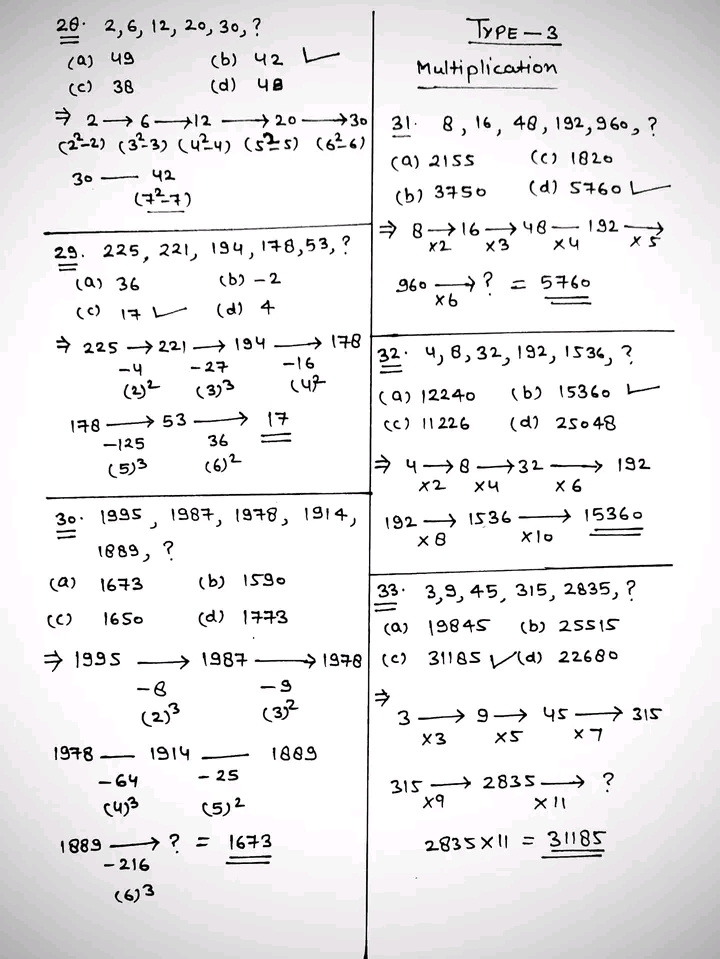 28. 2, 6, 12, 20, 30, ?
(a) 49 (b) 42 ✓
(c) 38 (d) 48
⇒ 2 → 6 → 12 → 20 → 30
(2²-2) (3²-3) (4²-4) (5²-5) (6²-6)
30 — 42
(7²-7)
29. 225, 221, 194, 178, 53, ?
(a) 36 (b) -2
(c) 17 ✓ (d) 4
⇒ 225 → 221 → 194 → 178
-4 -27 -16
(2)² (3)³ (4)²
178 → 53 → 17
-125 36
(5)³ (6)²
30. 1995, 1987, 1978, 1914,
1889, ?
(a) 1673 (b) 1590
(c) 1650 (d) 1773
⇒ 1995 → 1987 → 1978
-8 -9
(2)³ (3)²
1978 — 1914 — 1889
-64 -25
(4)³ (5)²
1889 → ? = 1673
-216
(6)³
TYPE-3
Multiplication
31. 8, 16, 48, 192, 960, ?
(a) 2155 (c) 1820
(b) 3750 (d) 5760 ✓
⇒ 8 → 16 → 48 — 192 →
×2 ×3 ×4 ×5
960 → ? = 5760
×6
32. 4, 8, 32, 192, 1536, ?
(a) 12240 (b) 15360 ✓
(c) 11226 (d) 25048
⇒ 4 → 8 → 32 → 192
×2 ×4 ×6
192 → 1536 → 15360
×8 ×10
33. 3, 9, 45, 315, 2835, ?
(a) 19845 (b) 25515
(c) 31185 ✓ (d) 22680
⇒
3 → 9 → 45 → 315
×3 ×5 ×7
315 → 2835 → ?
×9 ×11
2835×11 = 31185